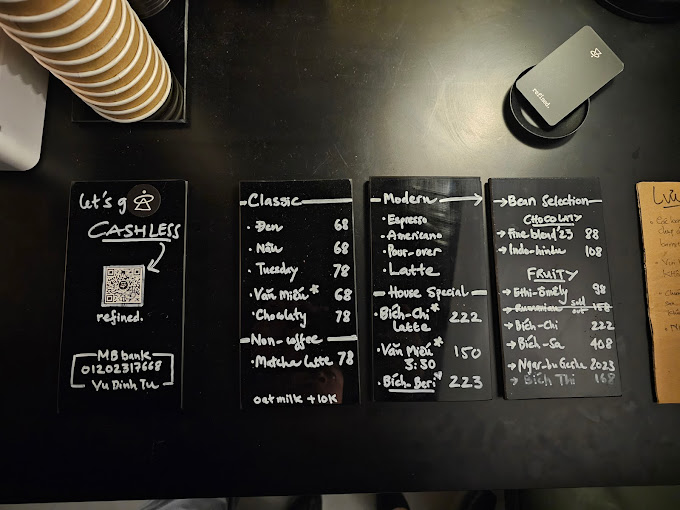 let's go
CASHLESS
refined.
MB bank
01202317668
Vu Dinh Tu
Classic
• Đen 68
• Nâu 68
• Tuesday 78
• Văn Miếu* 68
• Chocolaty 78
Non-coffee
• Matcha Latte 78
oat milk +10K
Modern
• Espresso
• Americano
• Pour-over
• Latte
House Special
• Bích-Chi* Latte 222
• Văn Miếu* 5:30 150
• Bích-Beri* 223
→ Bean Selection
CHOCOLATY
→ Fine blend '23 88
→ Indo-kinhu 108
FRUITY
→ Ethi-Smely 98
sold out 158
→ Bích-Chi 222
→ Bích-Sa 408
2023
→ Bích Thi 168
refined.